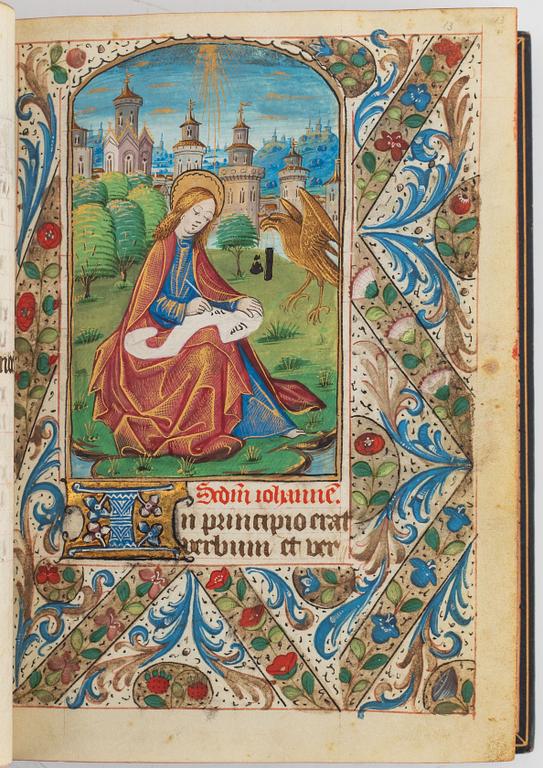 13
Scdm̄ iohanne͂.
In principio erat
verbum et ver